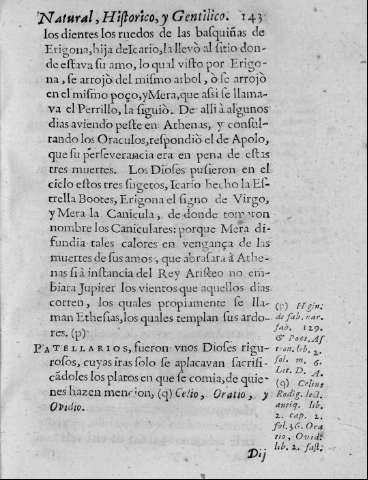 Natural, Historico, y Gentilico. 143
los dientes los ruedos de las basquiñas de
Erigona, hija de Icario, la llevò al sitio don-
de estava su amo, lo qual visto por Erigo-
na, se arrojò del mismo arbol, ò se arrojò
en el mismo poço, y Mera, que assi se llama-
va el Perrillo, la siguiò. De alli à algunos
dias aviendo peste en Athenas, y consul-
tando los Oraculos, respondiò el de Apolo,
que su perseverancia era en pena de estas
tres muertes. Los Dioses pusieron en el
cielo estos tres sugetos, Icario hecho la Es-
trella Bootes, Erigona el signo de Virgo,
y Mera la Canicula, de donde tomaron
nombre los Caniculares: porque Mera di-
fundia tales calores en vengança de las
muertes de sus amos, que abrasara à Athe-
nas si à instancia del Rey Aristeo no em-
biara Jupiter los vientos que aquellos dias
corren, los quales propiamente se lla-
man Ethesias, los quales templan sus ardo-
res. (p)
PATELLARIOS, fueron vnos Dioses rigu-
rosos, cuyas iras solo se aplacavan sacrifi-
cãdoles los platos en que se comia, de quie-
nes hazen mencion, (q) Celio, Oratio, y
Ovidio.
(p) Higin.
de fab. nar.
fab. 129.
& Poet. As
tron. lib. 2.
fol. m. 6.
Lit. D. A.
(q) Celius
Rodig. lect.
antiq. lib.
2. cap. 2.
fol. 36. Ora
tio, Ovidi
lib. 2. fast.
Dij